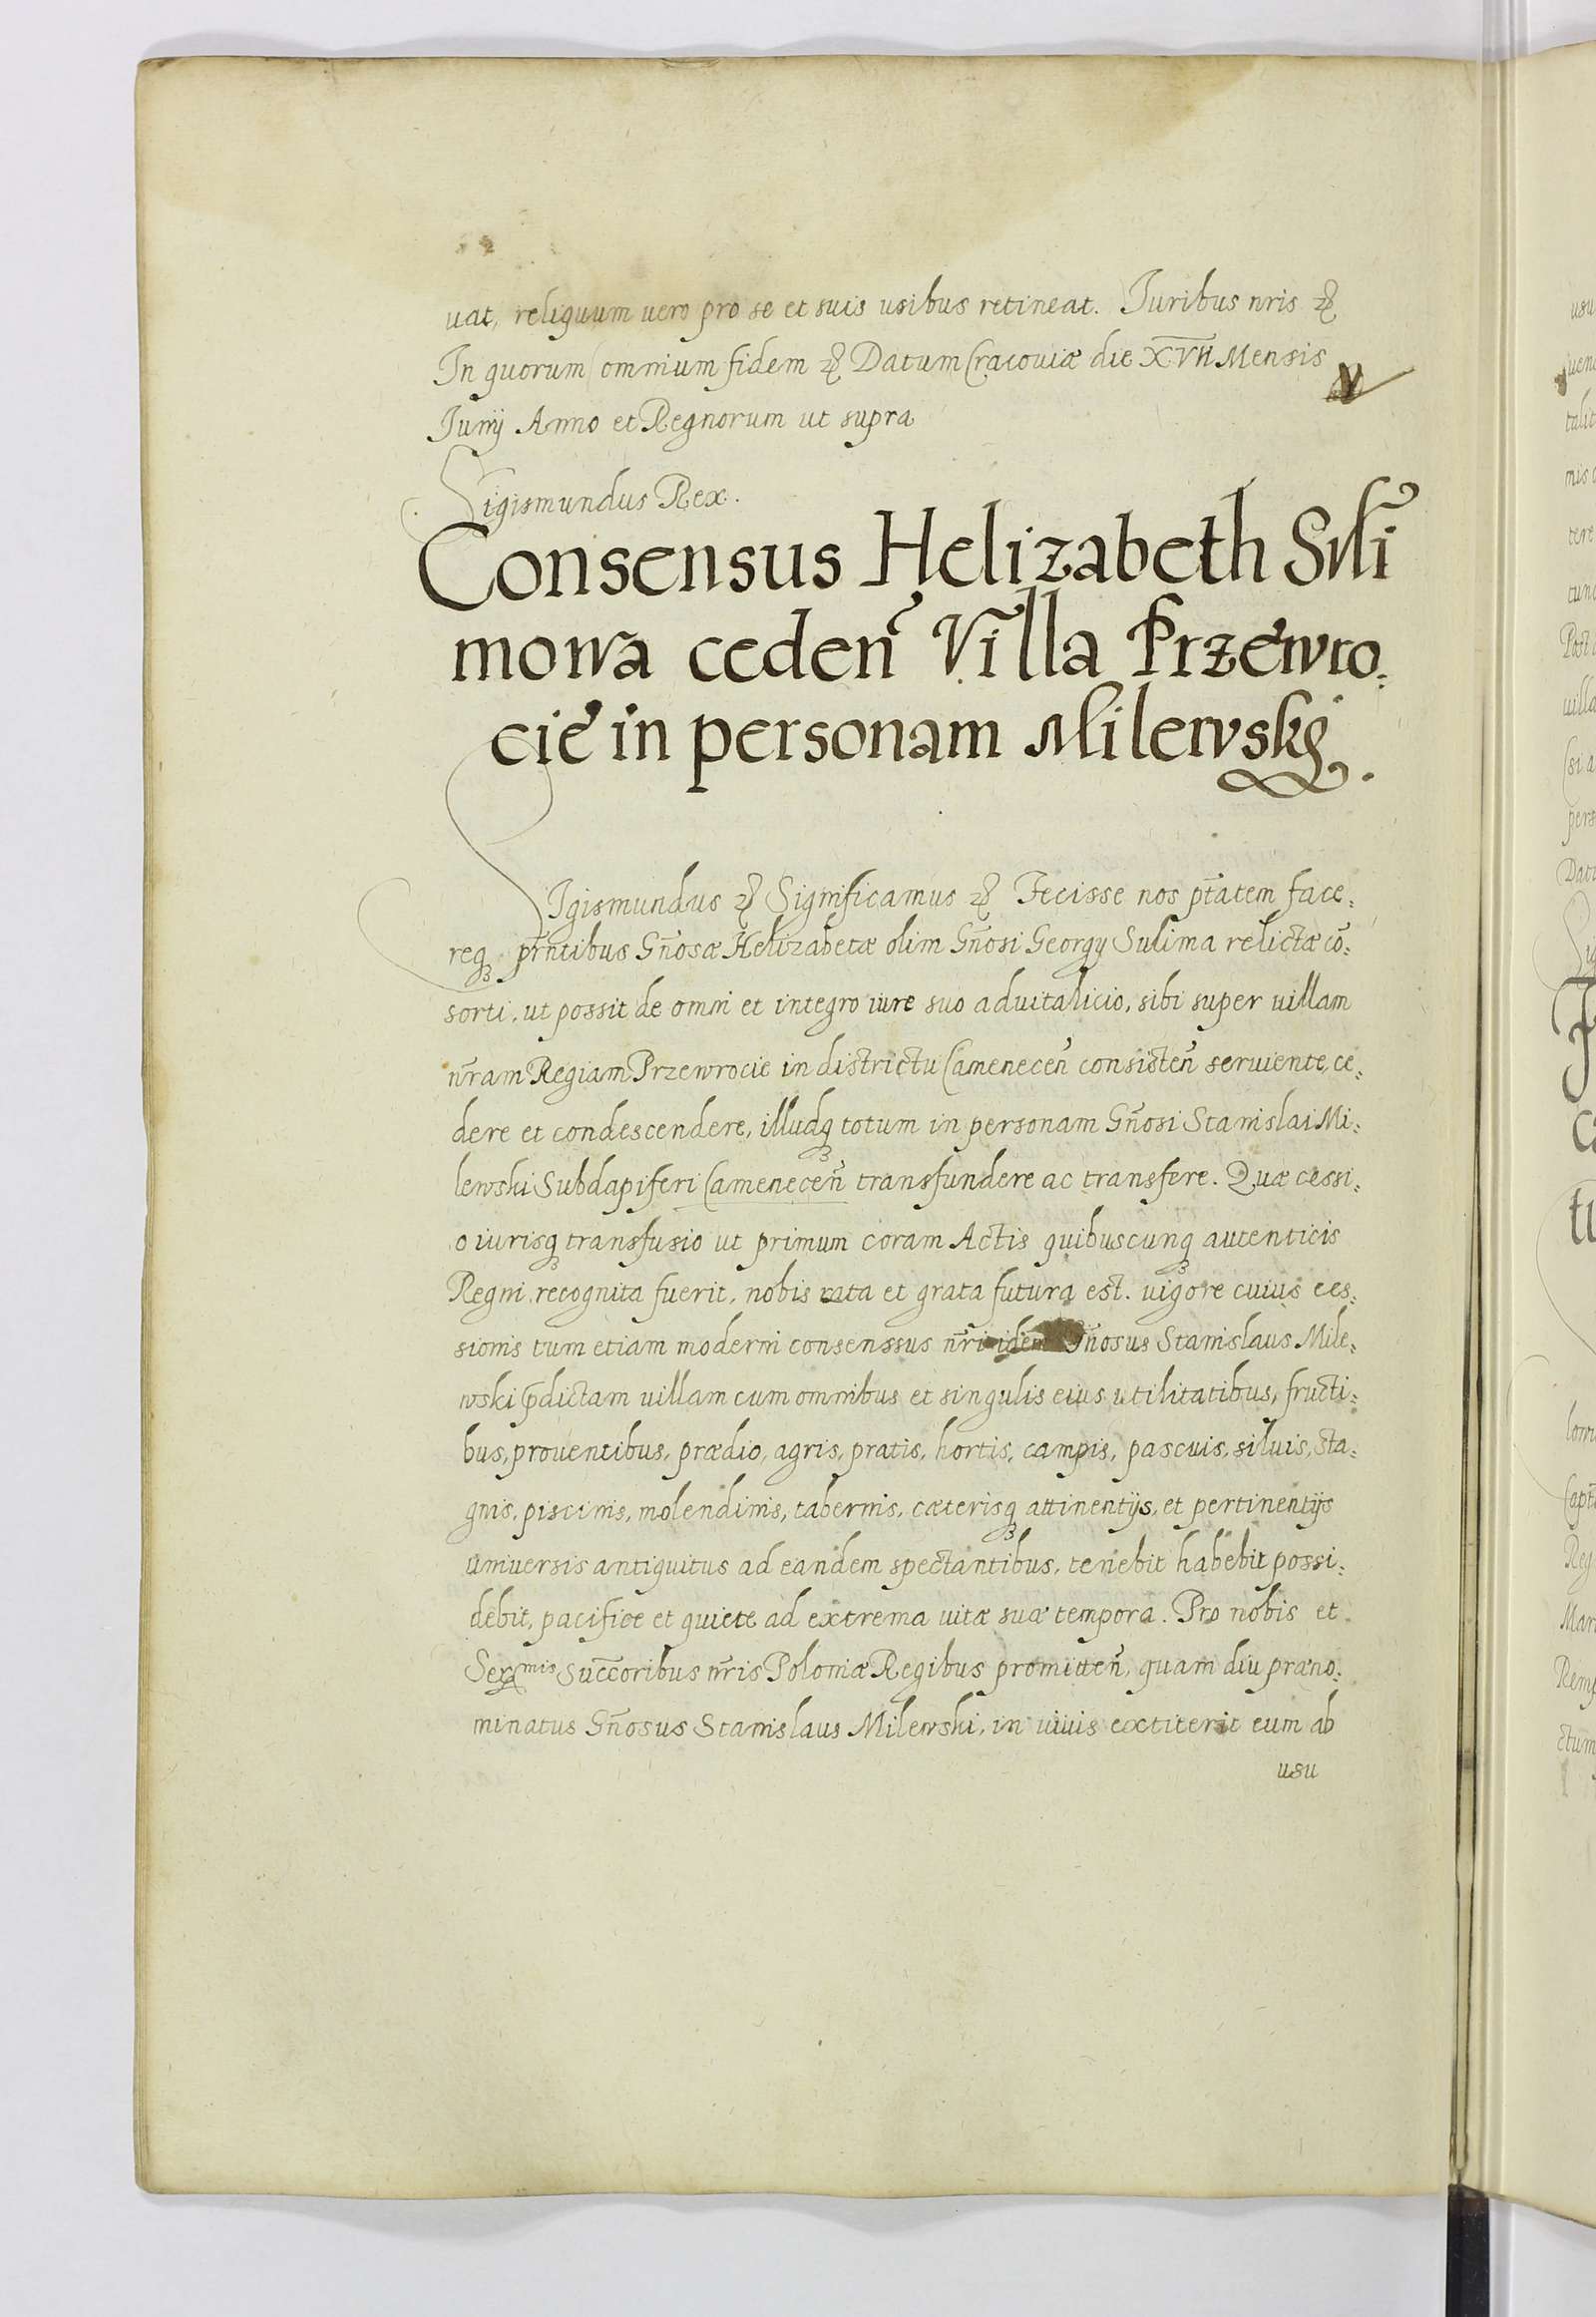 uat, reliquum uero pro se et suis usibus retineat. Iuribus nris etc
In quorum omnium fidem etc Datum Cracouiæ die XVII Mensis
Iunij Anno et Regnorum ut supra
Sigismundus Rex.
Consensus Helizabeth Suli
mowa ceden̄ Villa Przewro:
cie in personam Milewskj.
SIgismundus etc Significamus etc Fecisse nos ptātem face:
req; prn̄tibus Gn̄osæ Helizabetæ olim Gn̄osi Georgy Sulima relictæ cō:
sorti, ut possit de omni et integro iure suo aduitalicio, sibi super uillam
nr̄am Regiam Przewrocie in districtu Camenecen̄ consisten̄ seruiente, ce:
dere et condescendere, illudq; totum in personam Gn̄osi Stanislai Mi:
lewski Subdapiferi Camenecen̄ transfundere ac transfere. Quæ cessi:
o iurisq; transfusio ut primum coram Actis quibuscunq; autenticis
Regni recognita fuerit, nobis rata et grata futura est. uigore cuius ces:
sionis tum etiam moderni consenssus nr̄i idem Gn̄osus Stanislaus Mile:
wski p̄dictam uillam cum omnibus et singulis eius utilitatibus, fructi:
bus, prouentibus, prædio, agris, pratis, hortis, campis, pascuis, siluis, sta:
gnis, piscinis, molendinis, tabernis, cæterisq; attinentijs, et pertinentijs
uniuersis antiquitus ad eandem spectantibus, tenebit habebit possi:
debit, pacifice et quiete ad extrema uitæ suæ tempora. Pro nobis et
Ser<sup>mis</sup> Succ̄oribus nr̄is Poloniæ Regibus promitten̄, quam diu præno:
minatus Gn̄osus Stanislaus Milewski, in uiuis extiterit eum ab
usu